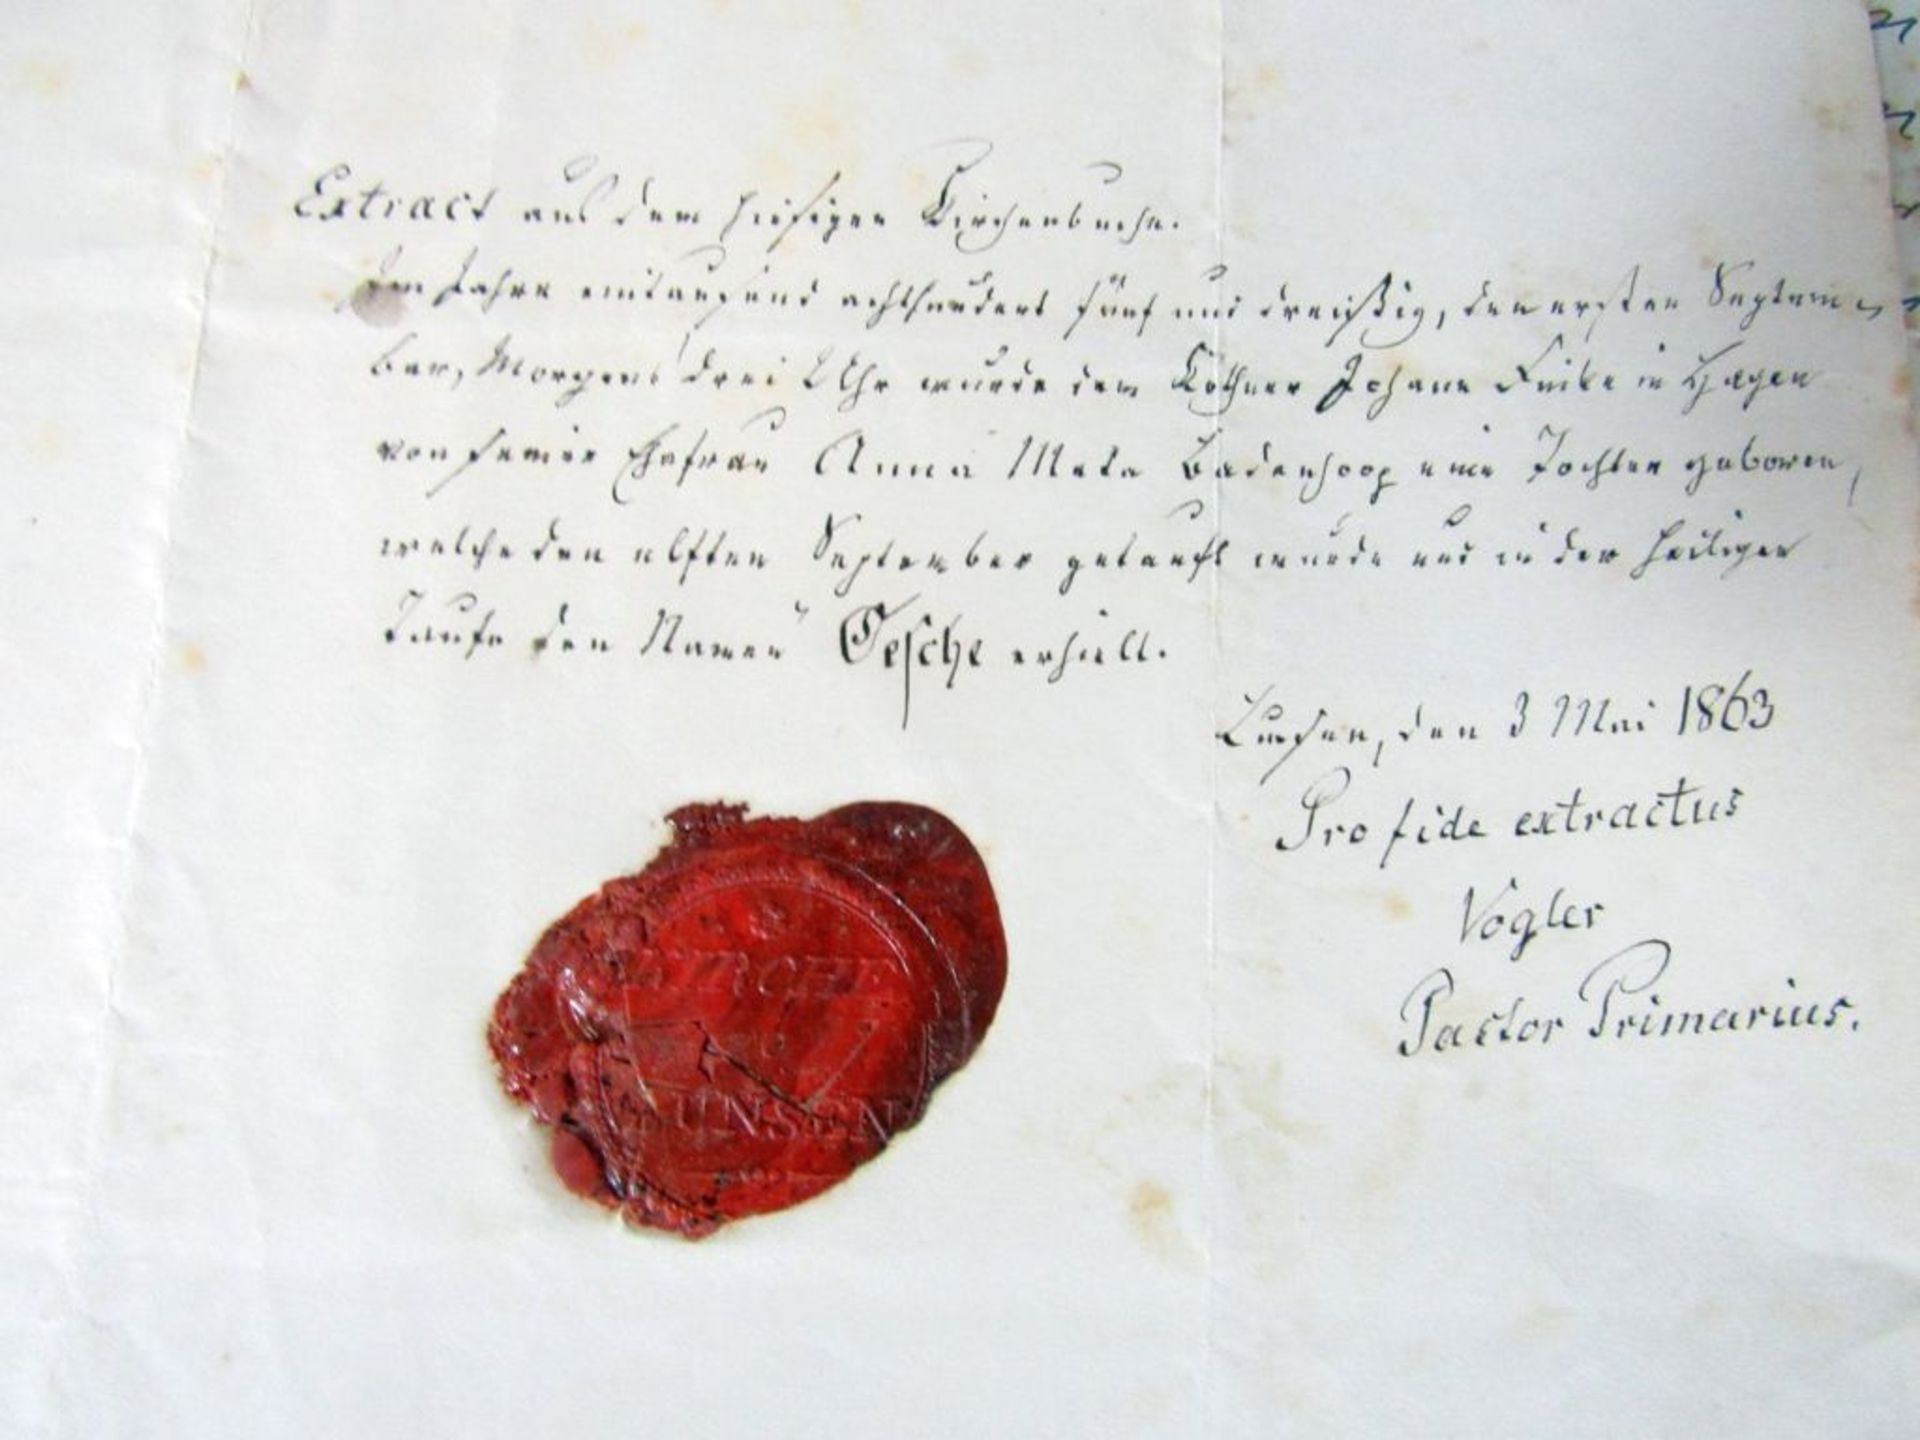 Extract aus dem hiesigen Kirchenbuche.
Im Jahre eintausend achthundert fünf und dreißig, den ersten Septem=
ber, Morgens drei Uhr wurde dem Köthner Johann Finke in Hagen
von seiner Ehefrau Anna Meta Badenhoop eine Tochter geboren,
welche den elften September getauft wurde und in der heiligen
Taufe den Namen " Gesche erhielt.
den 3 Mai 1863
Pro fide extractus
Vogler
Pastor Primarius.
KIRCHE
LUNSEN